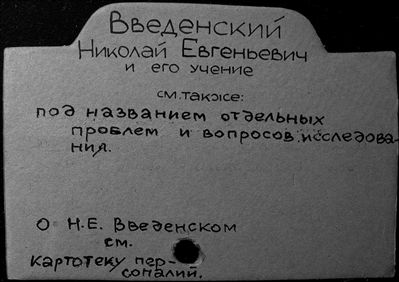 Введенский
Николай Евгеньевич
и его учение
см. также:
под названием отдельных
проблем и вопросов исследова-
ния.
О Н.Е. Введенском
см.
картотеку пер-
соналий.